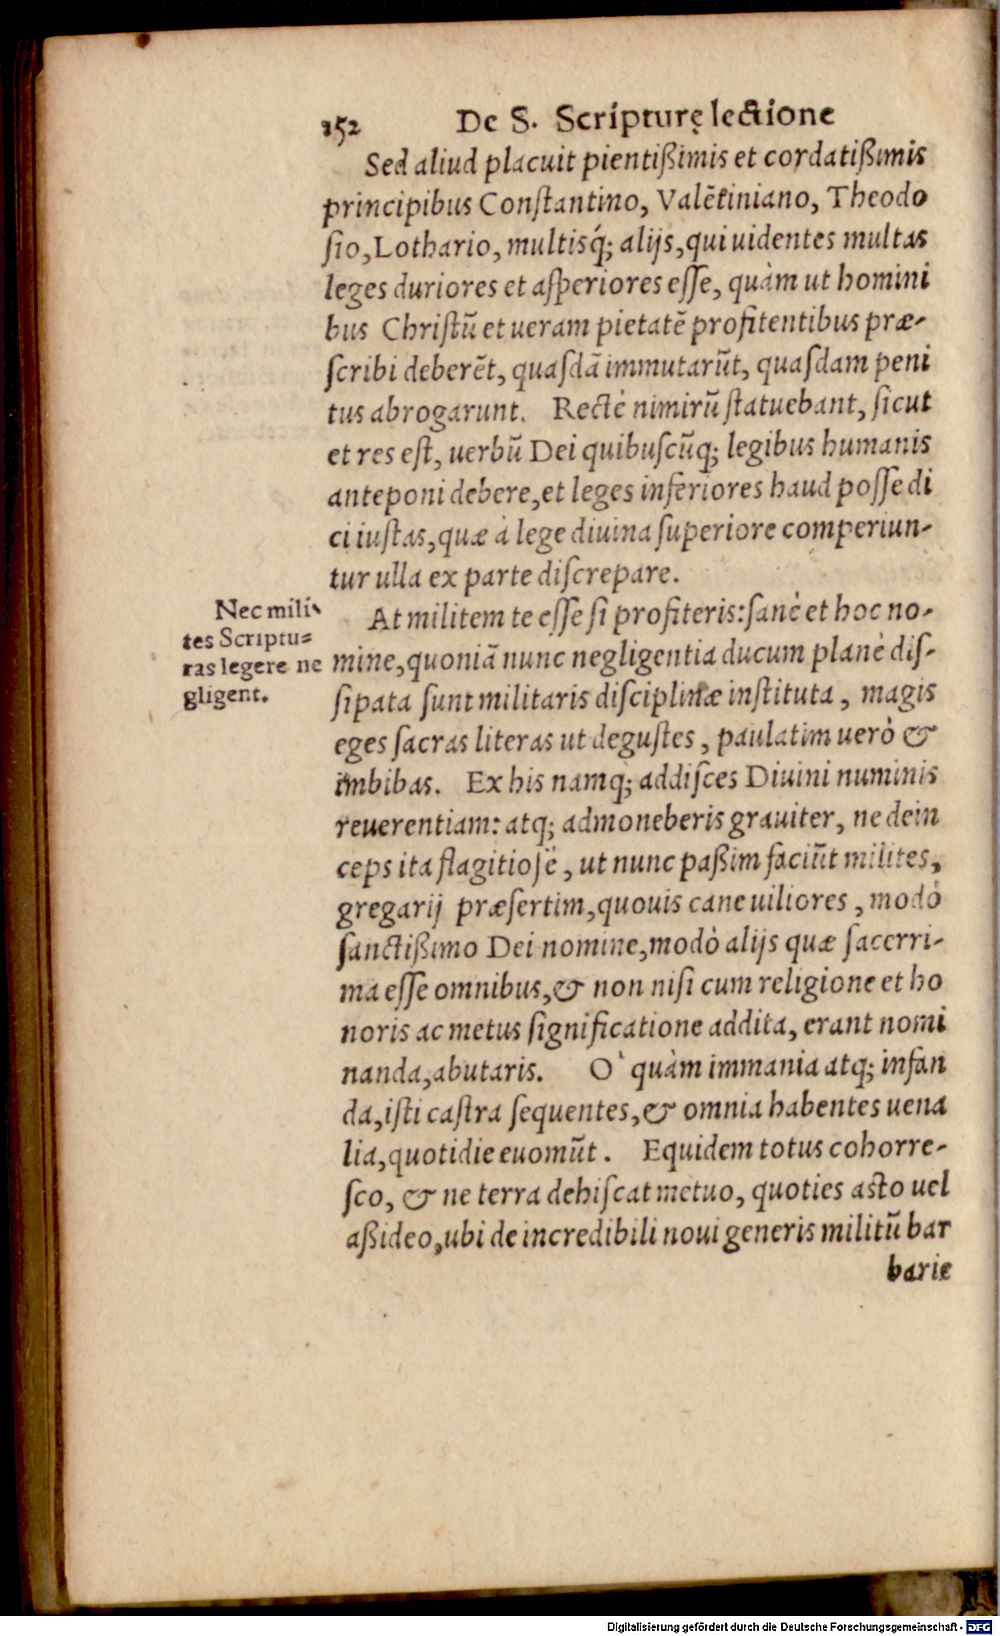 152 De S. Scripturę lectione
Sed aliud placuit pientißimis et cordatißimis
principibus Conſtantino, Valẽtiniano, Theodo
ſio, Lothario, multisq́; alijs, qui uidentes multas
leges duriores et aſperiores eſſe, quàm ut homini
bus Chriſtũ et ueram pietatẽ profitentibus præ-
ſcribi deberẽt, quaſdã immutarũt, quaſdam peni
tus abrogarunt. Rectè nimirũ ſtatuebant, ſicut
et res eſt, uerbũ Dei quibuſcũq; legibus humanis
anteponi debere, et leges inferiores haud poſſe di
ci iuſtas, quæ à lege diuina ſuperiore comperiun-
tur ulla ex parte diſcrepare.
Nec mili-
tes Scriptu=
ras legere ne
gligent.
At militem te eſſe ſi profiteris: ſanè et hoc no-
mine, quoniã nunc negligentia ducum planè diſ-
ſipata ſunt militaris diſciplinæ inſtituta, magis
eges ſacras literas ut deguſtes, paulatim uerò &
imbibas. Ex his namq; addiſces Diuini numinis
reuerentiam: atq; admoneberis grauiter, ne dein
ceps ita flagitioſè, ut nunc paßim faciũt milites,
gregarij præſertim, quouis cane uiliores, modò
ſanctißimo Dei nomine, modò alijs quæ ſacerri-
ma eſſe omnibus, & non niſi cum religione et ho
noris ac metus ſignificatione addita, erant nomi
nanda, abutaris. O` quàm immania atq; infan
da, iſti caſtra ſequentes, & omnia habentes uena
lia, quotidie euomũt. Equidem totus cohorre-
ſco, & ne terra dehiſcat metuo, quoties aſto uel
aßideo, ubi de incredibili noui generis militũ bar
barie
Digitalisierung gefördert durch die Deutsche Forschungsgemeinschaft - DFG